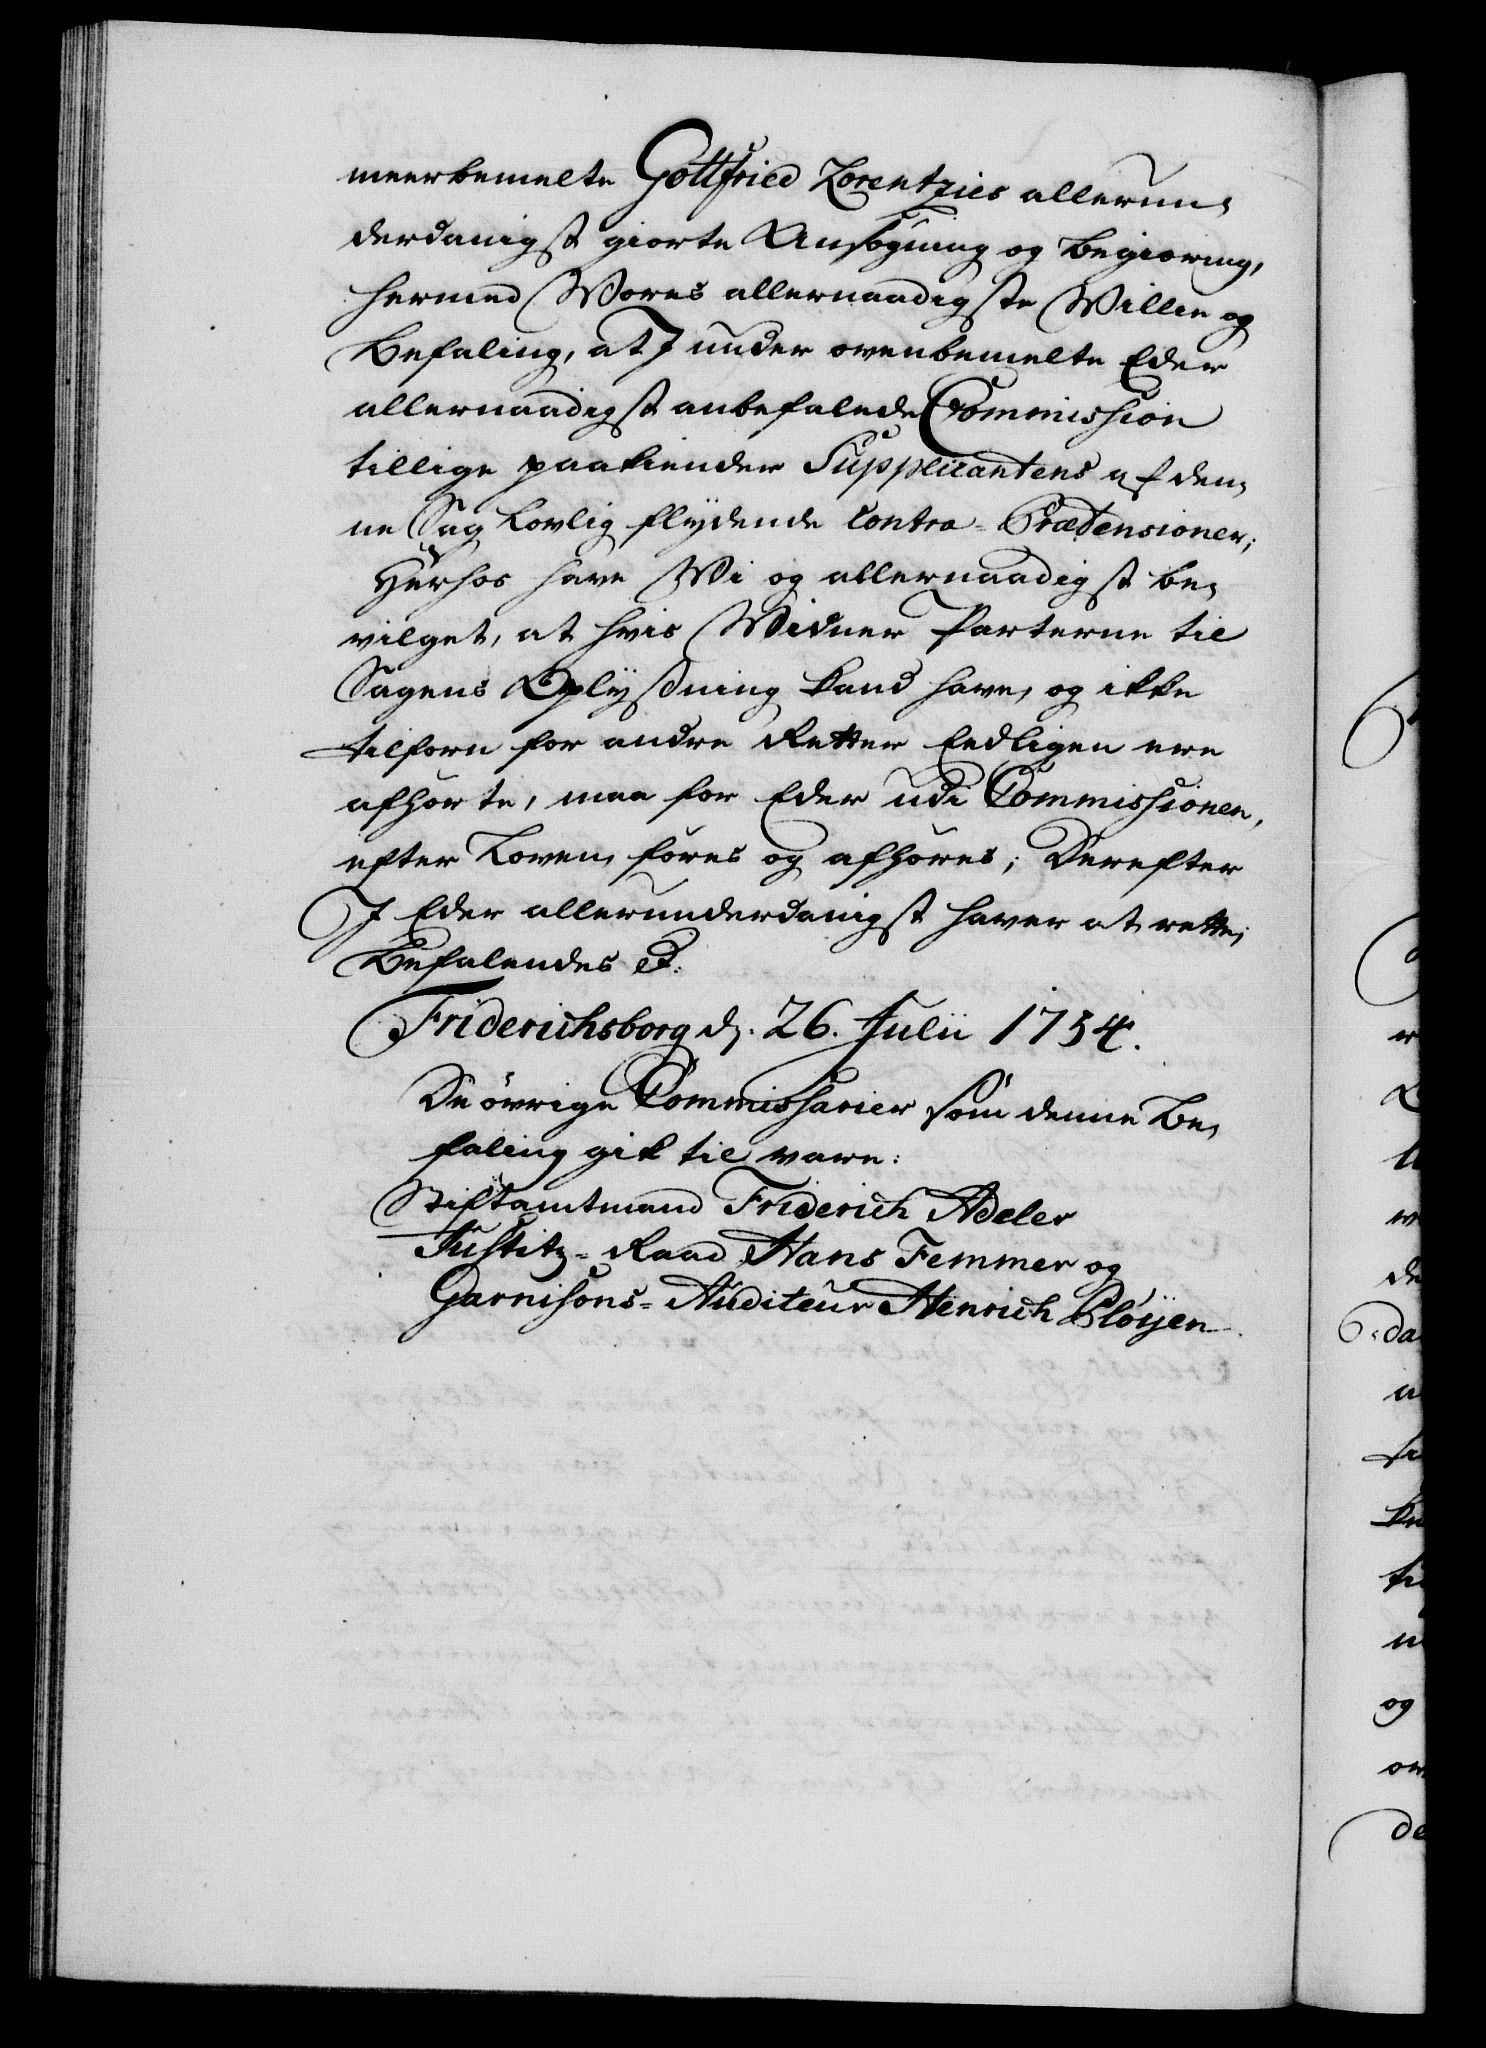 meerbemelte Gottfried Lorentzies allerun-
derdanigst giorte Ansøgning og begiæring,
hermed Vores allernaadigste Villie og
Befaling, at I under ovenbemelte Eder
allernaadigst anbefalede Commission
tillige paakiender Supplicantens af den-
ne Sag lovlig flydende Contra-Prætensioner;
Herhos have Vi og allernaadigst be-
vilget, at hvis Vidner Parterne til
Sagens Oplysning kand have, og ikke
tilforn for andre Retter Eedligen ere
afhørte, maa for Eder udi Commissionen,
efter Loven, føres og afhøres; Derefter
I Eder allerunderdanigst haver at rette;
Befalendes etc:
Friderichsborg d. 26. Julii 1754.
De øvrige Commissarier som denne Be-
faling gik til vare:
Stiftamtmand Friderich Adeler
Justitz-Raad Hans Femmer og
Garnisons-Auditeur Henrich Pløyen